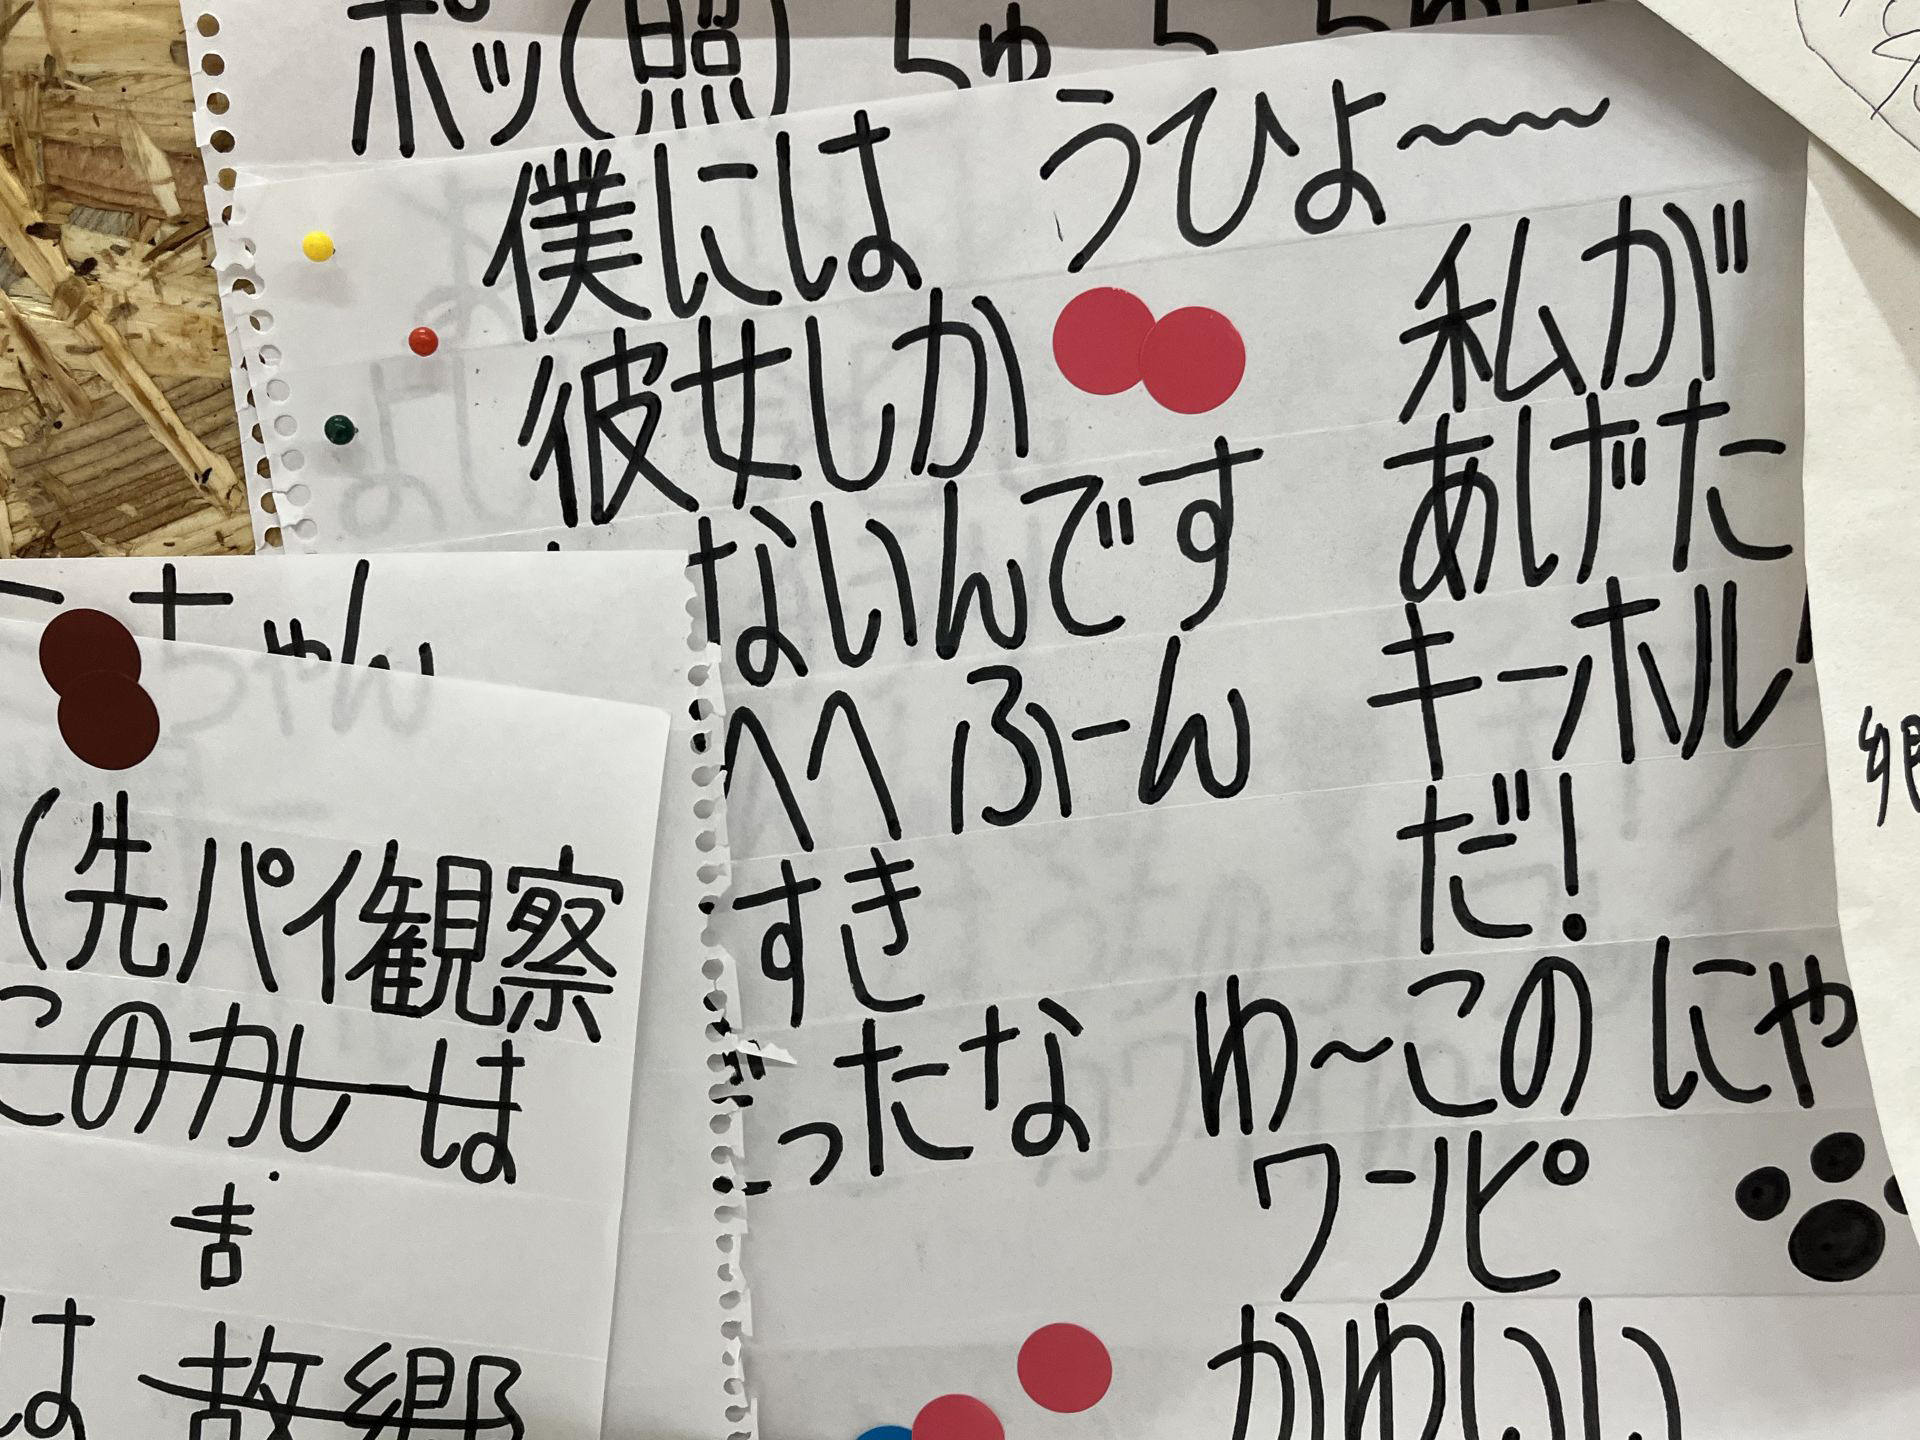 ポッ(照)
僕には
うひょ〜〜
彼女しか
ないんです
私が
あげた
キーホル
だ!
へへ ふーん
すき
ったな
わ〜この
にゃ
ワーピ
かわいい
ちゃん
(先パイ観察
このカレは
は 故郷